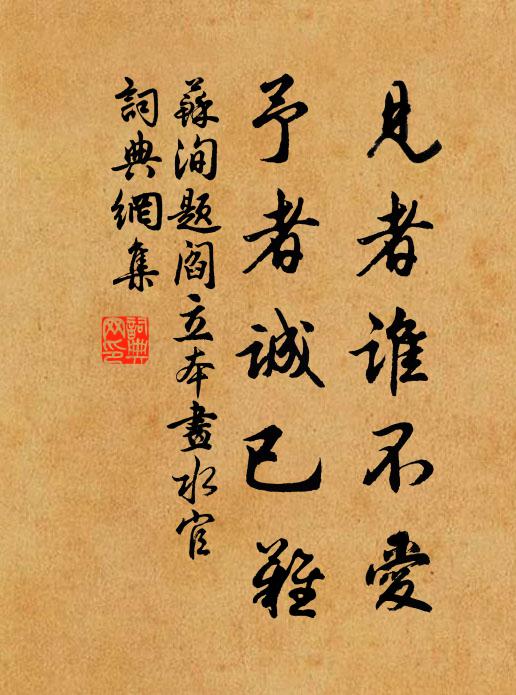 見者誰不愛
予者誠已難
蘇洵題閻立本畫水官
詞典網集
詞典
网印